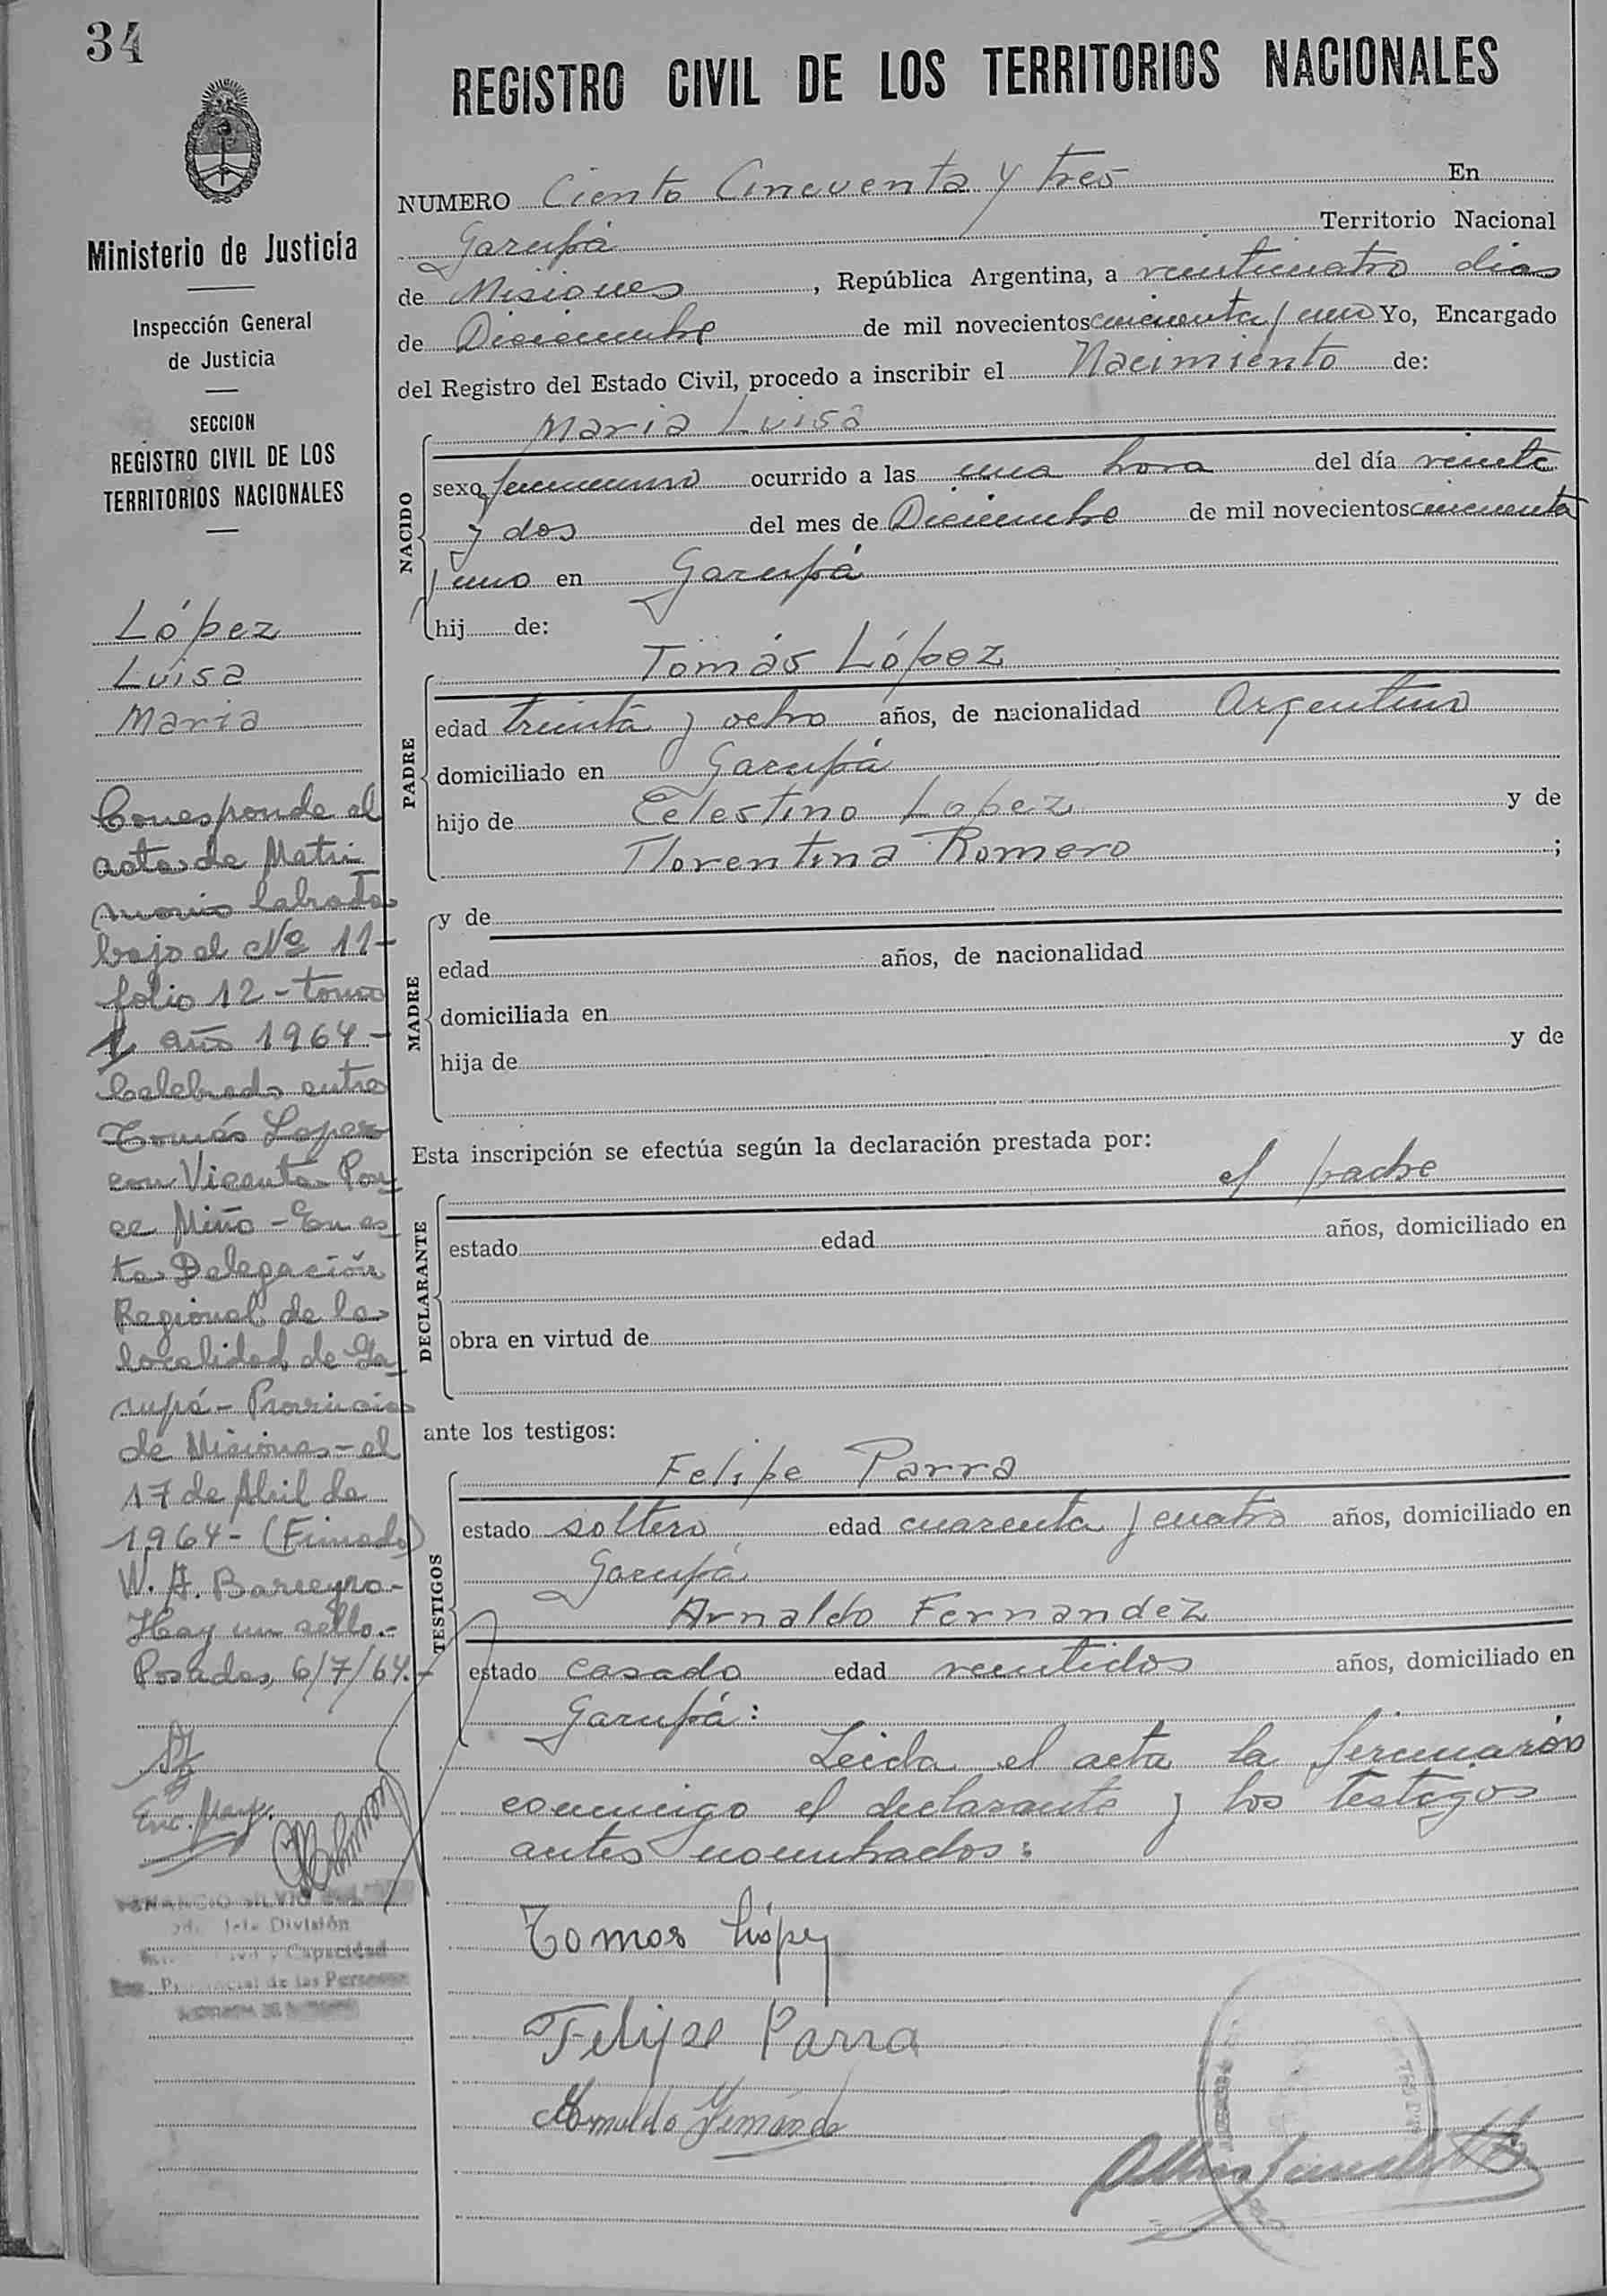 34
Ministerio de Justicia
Inspección General
de Justicia
SECCION
REGISTRO CIVIL DE LOS
TERRITORIOS NACIONALES
López
Luisa
Maria
Corresponde al
acta de Matri
monio labrada
bajo el Nº 11-
folio 12 - tomo
1 año 1964 -
Celebrado entre
Tomás Lopez
con Vicenta Pon
ce Miño - En es
ta Delegación
Regional de la
localidad de Ga
rupá - Provincia
de Misiones - el
17 de Abril de
1964 - (Firmado)
W. A. Barreyro -
Hay un sello.-
Posadas, 6/7/64.-
Enc.
División
Capacidad
de las Personas
REGISTRO CIVIL DE LOS TERRITORIOS NACIONALES
NUMERO Ciento Cincuenta y tres En
Garupá Territorio Nacional
de Misiones, República Argentina, a veinticuatro dias
de Diciembre de mil novecientos cincuenta y uno Yo, Encargado
del Registro del Estado Civil, procedo a inscribir el Nacimiento de:
NACIDO
Maria Luisa
sexo femenino ocurrido a las una hora del día veinte
y dos del mes de Diciembre de mil novecientos cincuenta
y uno en Garupá
hij de:
PADRE
Tomás López
edad treinta y ocho años, de nacionalidad Argentino
domiciliado en Garupá
hijo de Celestino Lopez y de
Florentina Romero ;
MADRE
y de
edad años, de nacionalidad
domiciliada en
hija de y de
Esta inscripción se efectúa según la declaración prestada por:
DECLARANTE
el padre
estado edad años, domiciliado en
obra en virtud de
ante los testigos:
TESTIGOS
Felipe Parra
estado soltero edad cuarenta y cuatro años, domiciliado en
Garupá
Arnaldo Fernandez
estado casado edad veintidos años, domiciliado en
Garupá:
Leida el acta la firmarón
conmigo el declarante y los testigos
antes nombrados:
Tomas López
Felipe Parra